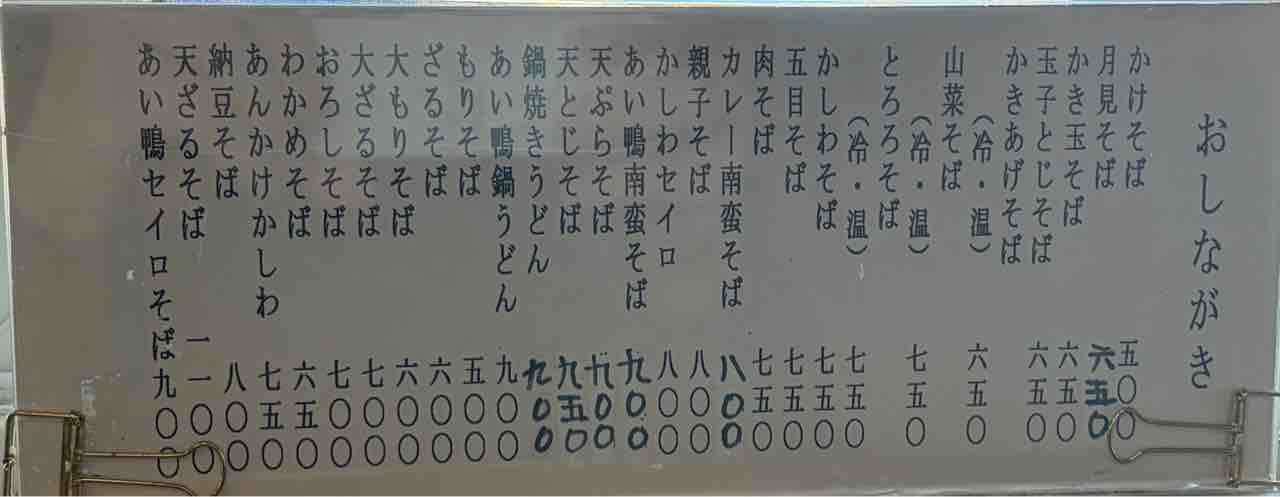 おしながき
かけそば 五〇〇
月見そば 六五〇
かき玉そば 六五〇
玉子とじそば 六五〇
かきあげそば
（冷・温） 六五〇
山菜そば
（冷・温） 七五〇
とろろそば
（冷・温） 七五〇
かしわそば 七五〇
五目そば 七五〇
肉そば 七五〇
カレー南蛮そば 八〇〇
親子そば 八〇〇
かしわセイロ 八〇〇
あい鴨南蛮そば 九〇〇
天ぷらそば 九〇〇
天とじそば 九五〇
鍋焼きうどん 九〇〇
あい鴨鍋うどん 九〇〇
もりそば 五〇〇
ざるそば 六〇〇
大もりそば 六〇〇
大ざるそば 七〇〇
おろしそば 七〇〇
わかめそば 六五〇
あんかけかしわ 七五〇
納豆そば 八〇〇
天ざるそば 一一〇〇
あい鴨セイロそば 九〇〇